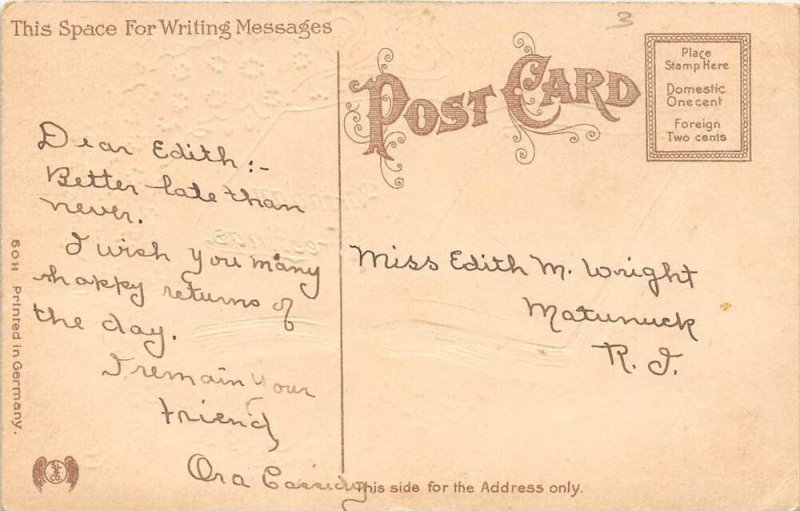 This Space For Writing Messages
3
POST CARD
Place
Stamp Here
Domestic
One cent
Foreign
Two cents
Dear Edith:-
Better late than
never.
I wish you many
happy returns of
the day.
I remain your
friend,
Ora Cassidy
Miss Edith M. Wright
Matunuck
R. I.
6011 Printed in Germany.
This side for the Address only.